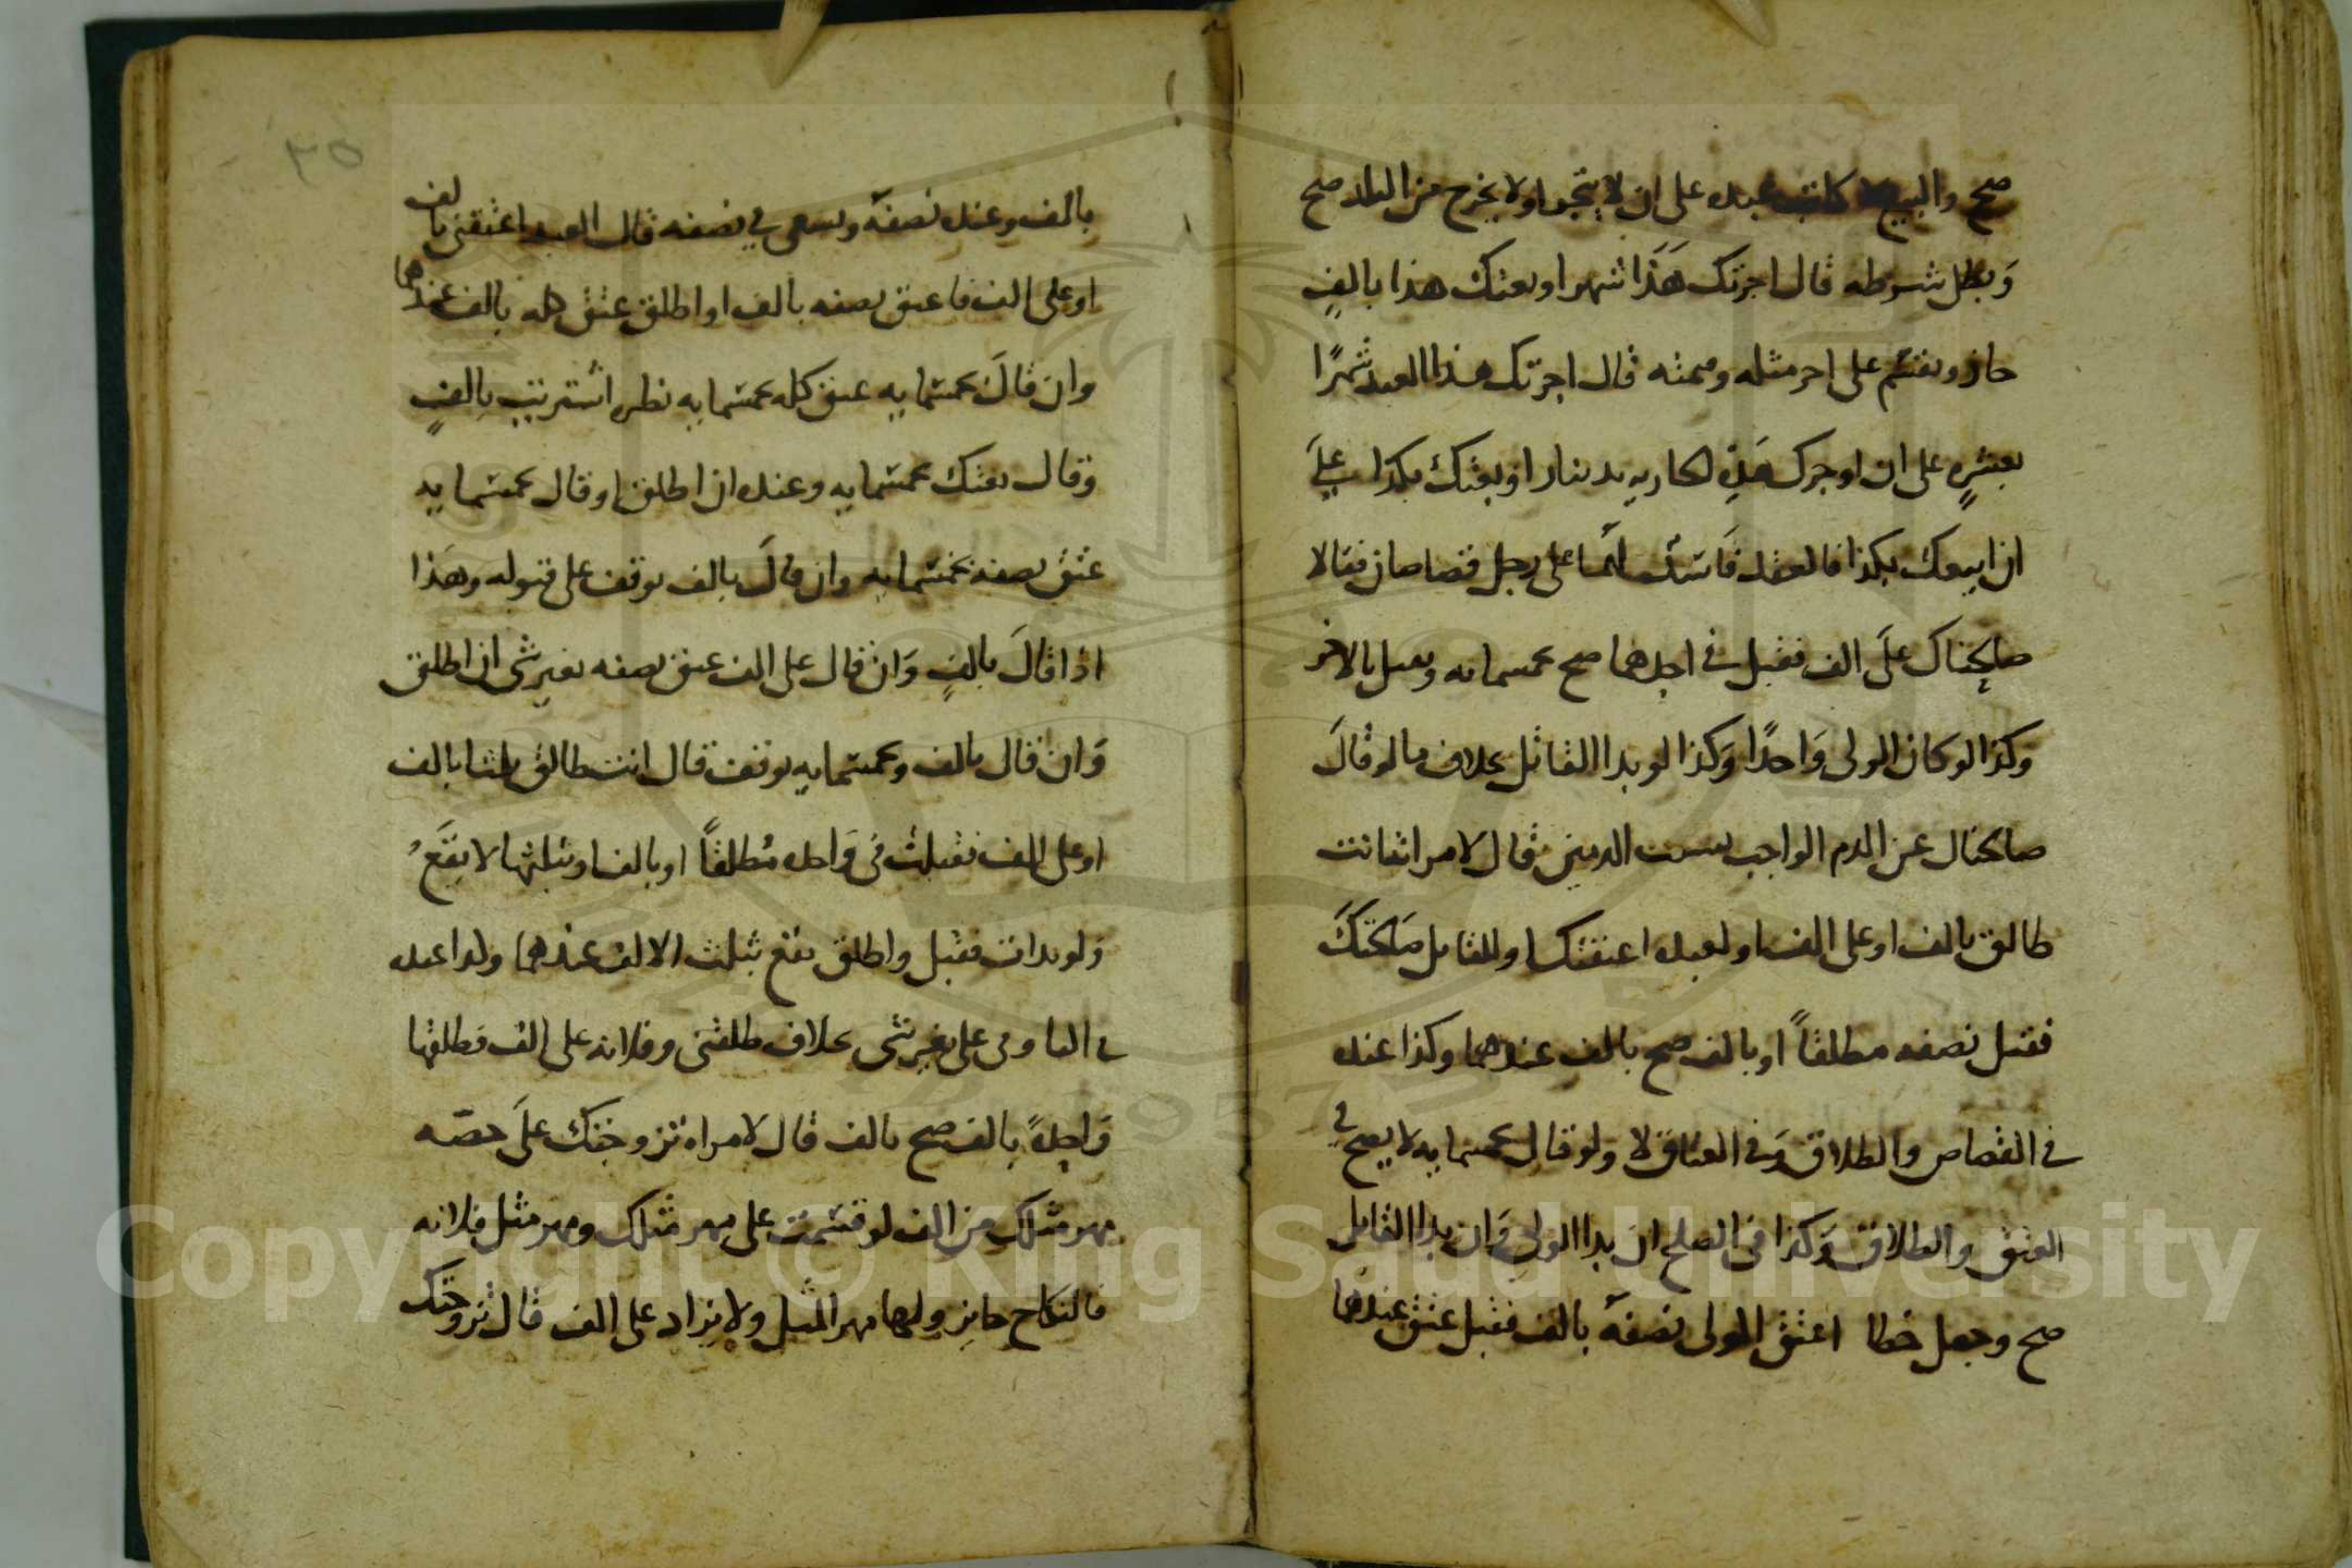 صح والبيع لا كاتب عبده على ان لا يتجر او لا يخرج من البلد صح
وبطل شرطه قال اجرتك هذا شهرا او بعتك هذا بالف
جاز ويقسم على اجر مثله وقيمته قال اجرتك هذا العبد شهرًا
بعشرٍ على ان اوجرك هذه الجاريه بدينار او بعتك بكذا على
ان ابيعك بكذا فالعقد فاسد لهما على رجل قصاصان فقالا
صالحناك على الف فقبل في احدهما صح بخمسمائه وبطل بالاخر
وكذا لو كان الولي واحدًا وكذا لو بدا القاتل بخلاف ما لو قال
صالحناك عن الدم الواجب بسبب الدمين قال لامراته انت
طالق بالف او على الف او لعبده اعتقتك او للقاتل صالحتك
فقبل نصفه مطلقًا او بالف صح بالف عندهما وكذا عنده
في القصاص والطلاق وفي العتاق لا ولو قال بخمسمايه لا يصح في
العتق والطلاق وكذا في الصلح ان بدا الولي وان بدا القاتل
صح وجعل خطا اعتق المولى نصفه بالف فقبل عتق عندهما
٣٥
بالف وعنده نصفه ويسعى في نصفه قال العبد اعتقني بالف
او على الف فاعتق نصفه بالف او اطلق عتق كله بالف عندهما
وان قال بخمسمايه عتق كله بخمسمايه نظيره اشتريت بالفٍ
وقال بعتك بخمسمايه وعنده ان اطلق او قال بخمسمايه
عتق نصفه بخمسمايه وان قال بالف يوقف على قبوله وهذا
اذا قال بالفٍ وان قال على الف عتق نصفه بغير شي ان اطلق
وان قال بالف وبخمسمايه يوقف قال انت طالق ثلثا بالف
او على الف فقبلت في واحده مطلقًا او بالف او بثلثها لا يقع
ولو بدات فقبل واطلق يقع بثلث الالف عندهما ولو اعنده
في البا وفي على بغير شي بخلاف طلقني وفلانه على الف فطلقها
واحدهً بالف صح بالف قال لامراه تزوجتك على حصه
مهر مثلك من الف لو قسمت على مهر مثلك ومهر مثل فلانه
فالنكاح جايز ولها مهر المثل ولا يزاد على الف قال تزوجتك